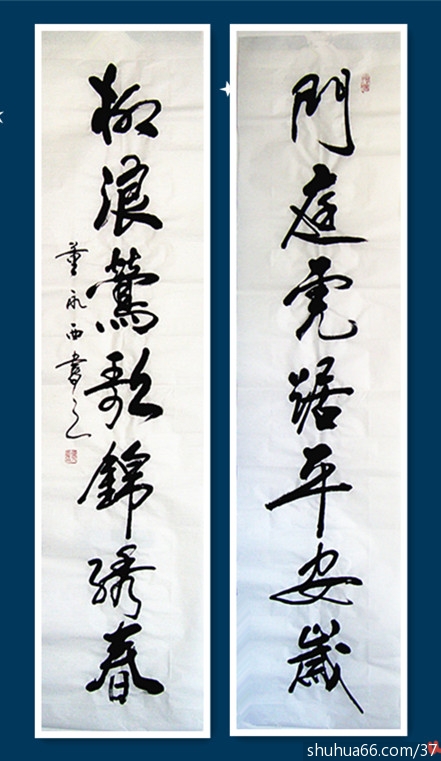 門庭虎踞平安歲
柳浪鶯歌錦綉春
董永西書之
shuhua66.com/37